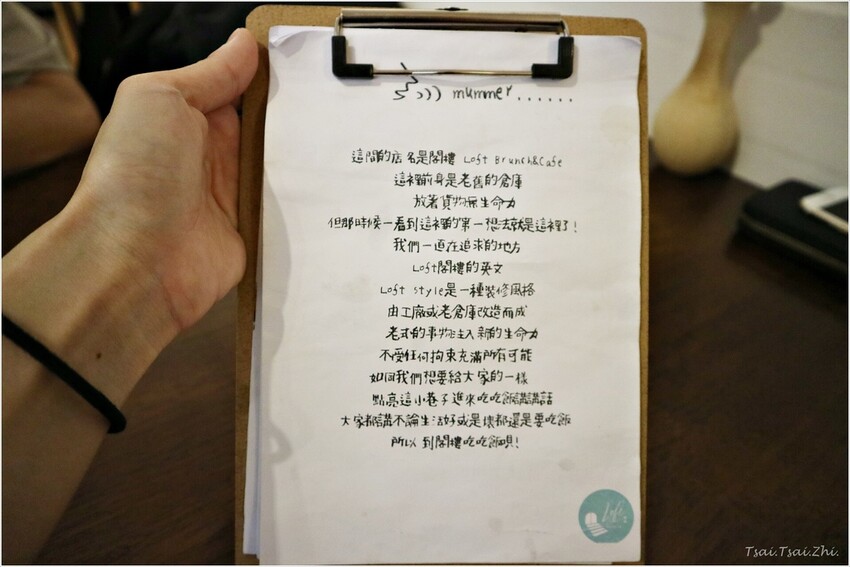 mummer......
這間的店名是閣樓 Loft Brunch&Cafe
這裡前身是老舊的倉庫
放著貨物無生命力
但那時候一看到這裡的第一想法就是這裡了!
我們一直在追求的地方
Loft閣樓的英文
Loft style是一種裝修風格
由工廠或老倉庫改造而成
老式的事物注入新的生命力
不受任何拘束充滿所有可能
如同我們想要給大家的一樣
點亮這小巷子進來吃吃飯講講話
大家都講不論生活好或是壞都還是要吃飯
所以 到閣樓吃吃飯唄!
Loft
Tsai.Tsai.Zhi.